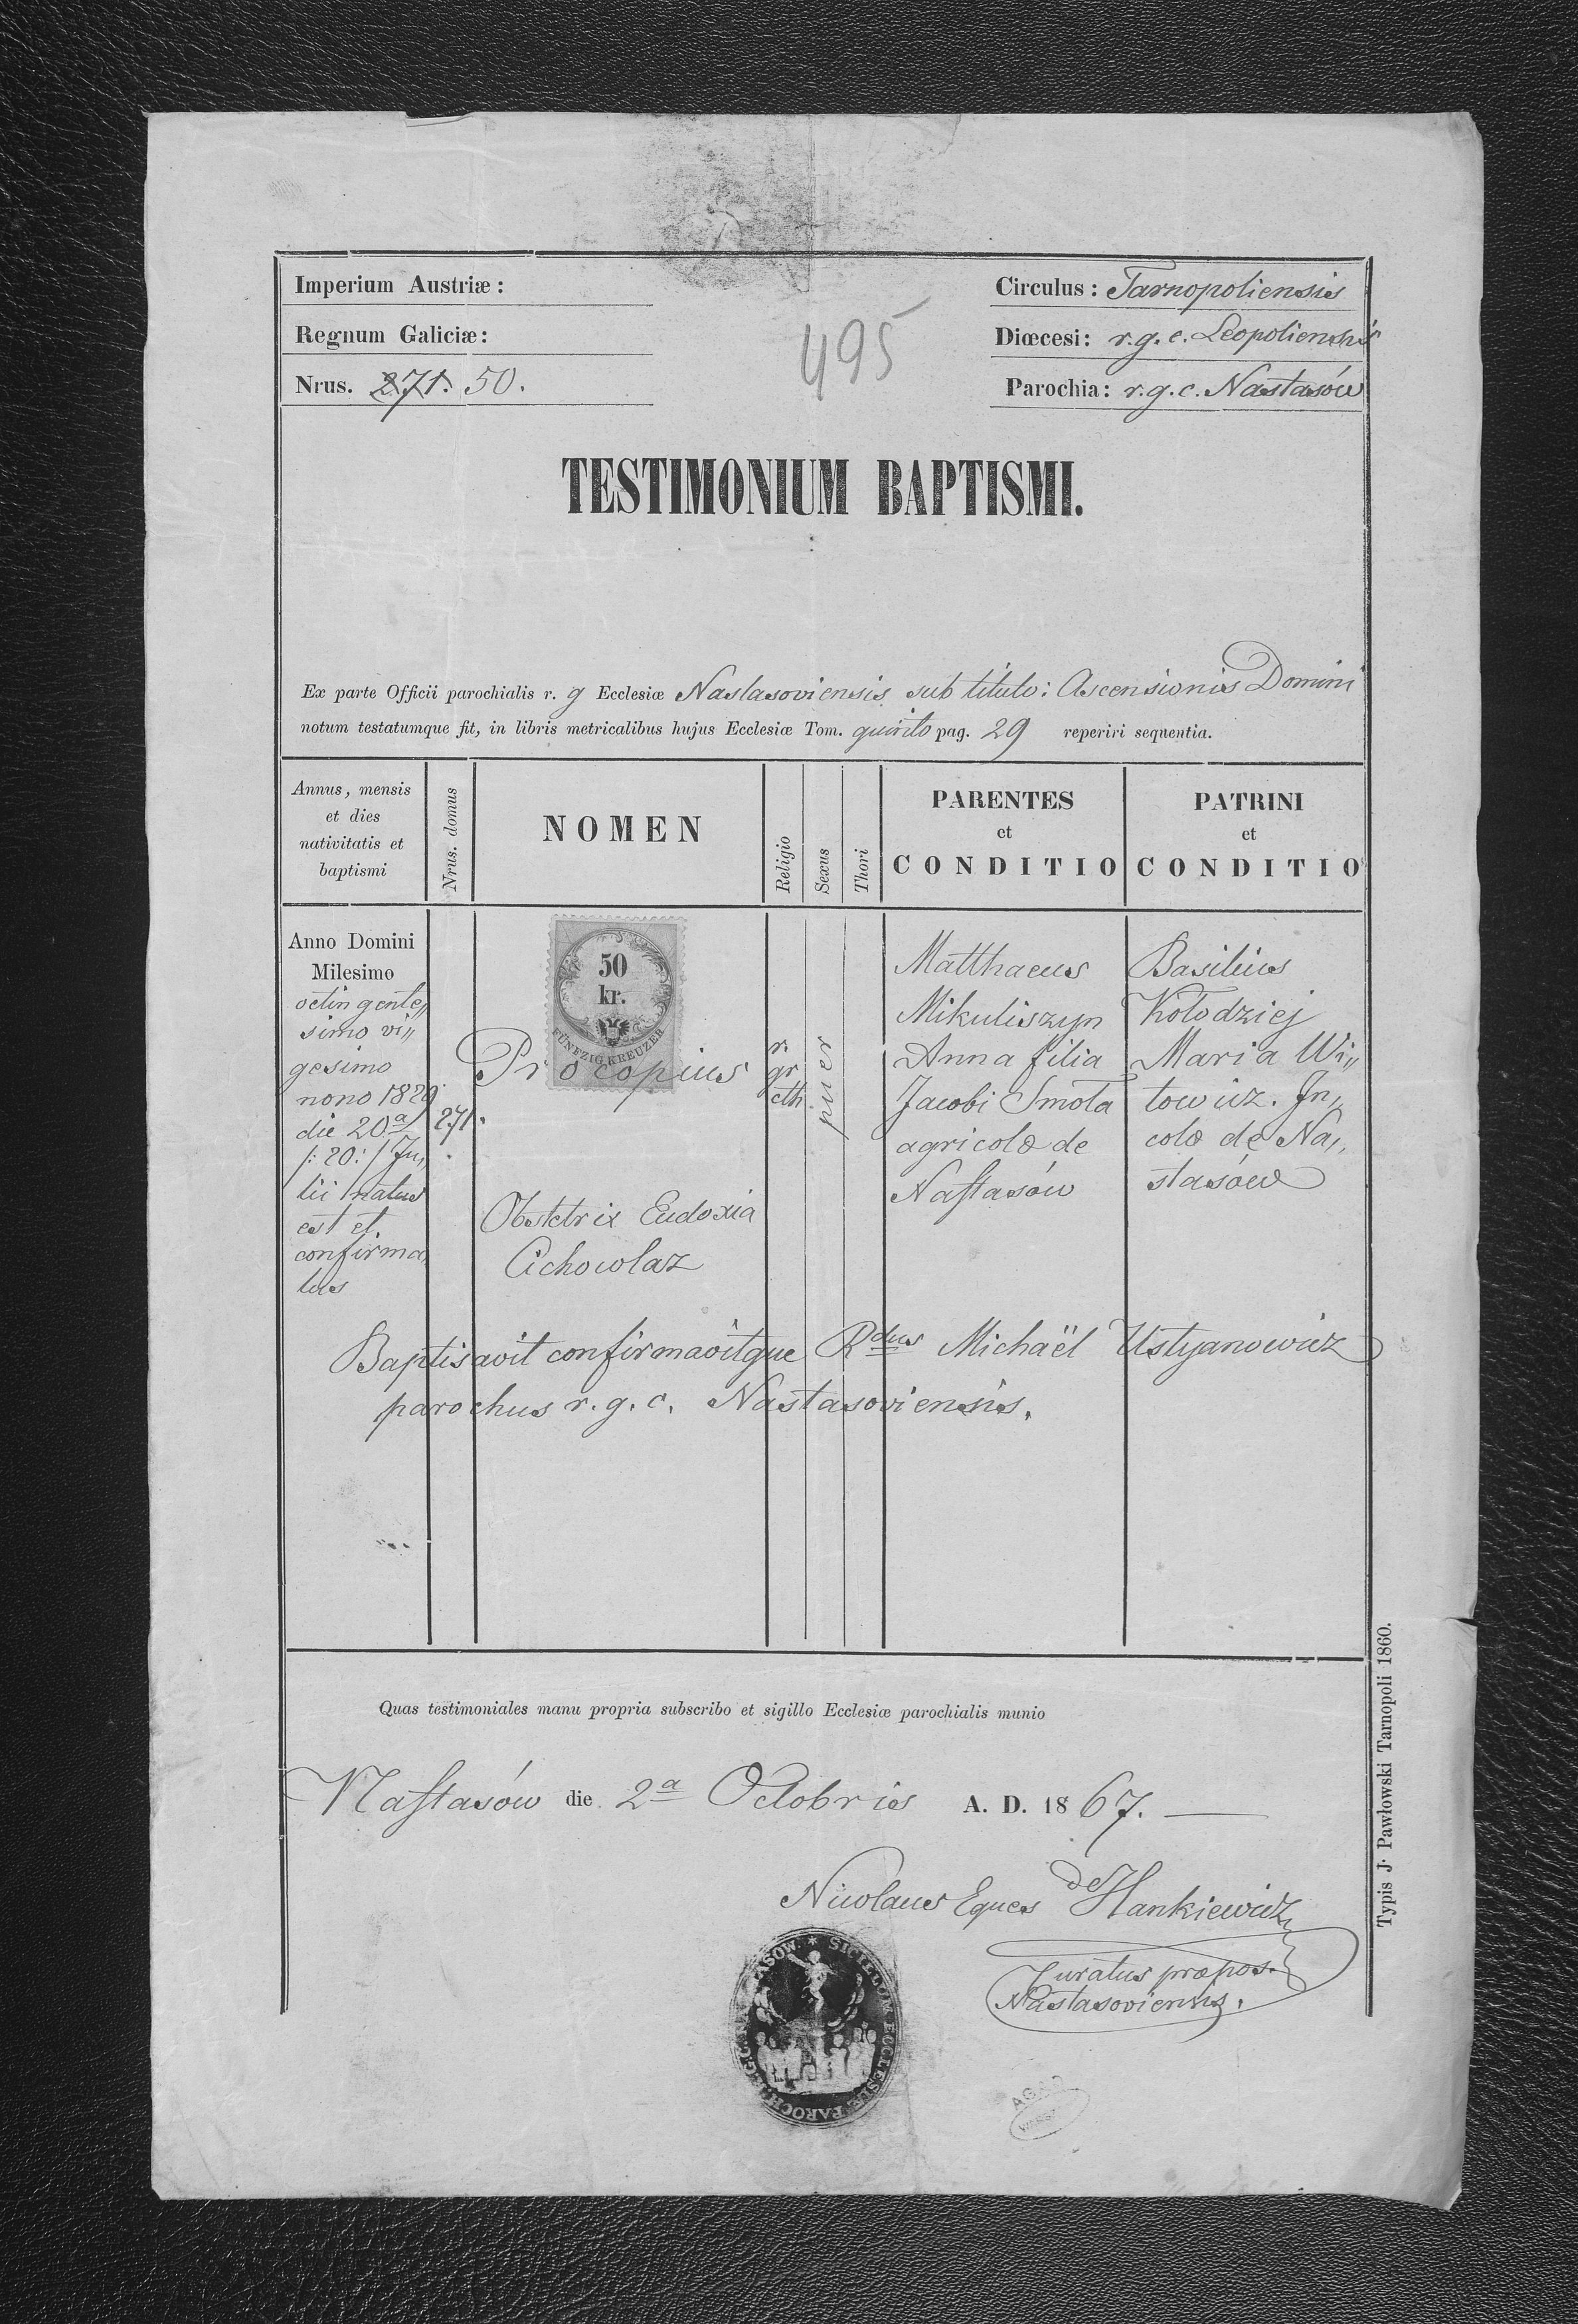 Imperium Austriæ:
Regnum Galiciæ:
Nrus. 271. 50.
495
Circulus: Tarnopoliensis
Diœcesi: r.g.c. Leopoliensis
Parochia: r.g.c. Nastasów
TESTIMONIUM BAPTISMI.
Ex parte Officii parochialis r. g Ecclesiæ Nastasoviensis sub titulo: Ascensionis Domini
notum testatumque fit, in libris metricalibus hujus Ecclesiæ Tom. quinto pag. 29 reperiri sequentia.
Annus, mensis
et dies
nativitatis et
baptismi
Nrus. domus
NOMEN
Religio
Sexus
Thori
PARENTES
et
CONDITIO
PATRINI
et
CONDITIO
Anno Domini
Milesimo
octingente„
simo vi„
gesimo
nono 1829
die 20a
/: 20:/ Ju„
lii natus
est et
confirma„
tus
271.
50
kr.
FÜNFZIG KREUZER
Procopius
Obstetrix Eudoxia
Cichowlaz
r.
gr
cth
puer
Matthaeus
Mikuliszyn
Anna filia
Jacobi Smota
agricolæ de
Nastasów
Basilius
Kołodziej
Maria Wi„
towicz. In„
colæ de Na„
stasów
Baptisavit confirmavitque Rdus Michaël Ustyanowicz
parochus r.g.c. Nastasoviensis.
Quas testimoniales manu propria subscribo et sigillo Ecclesiæ parochialis munio
Nastasów die 2a Octobris A. D. 1867.
Nicolaus Eques de Hankiewicz
Curatus præpos.
Nastasoviensis.
SIGILLUM ECCLESIÆ PAROCH. R.G.C.
AGAD
Typis J. Pawłowski Tarnopoli 1860.